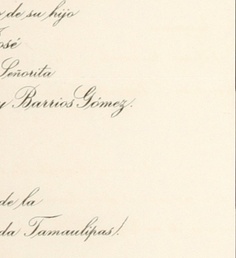 de su hijo
José
Señorita
y Barrios Gómez.
de la
da Tamaulipas!